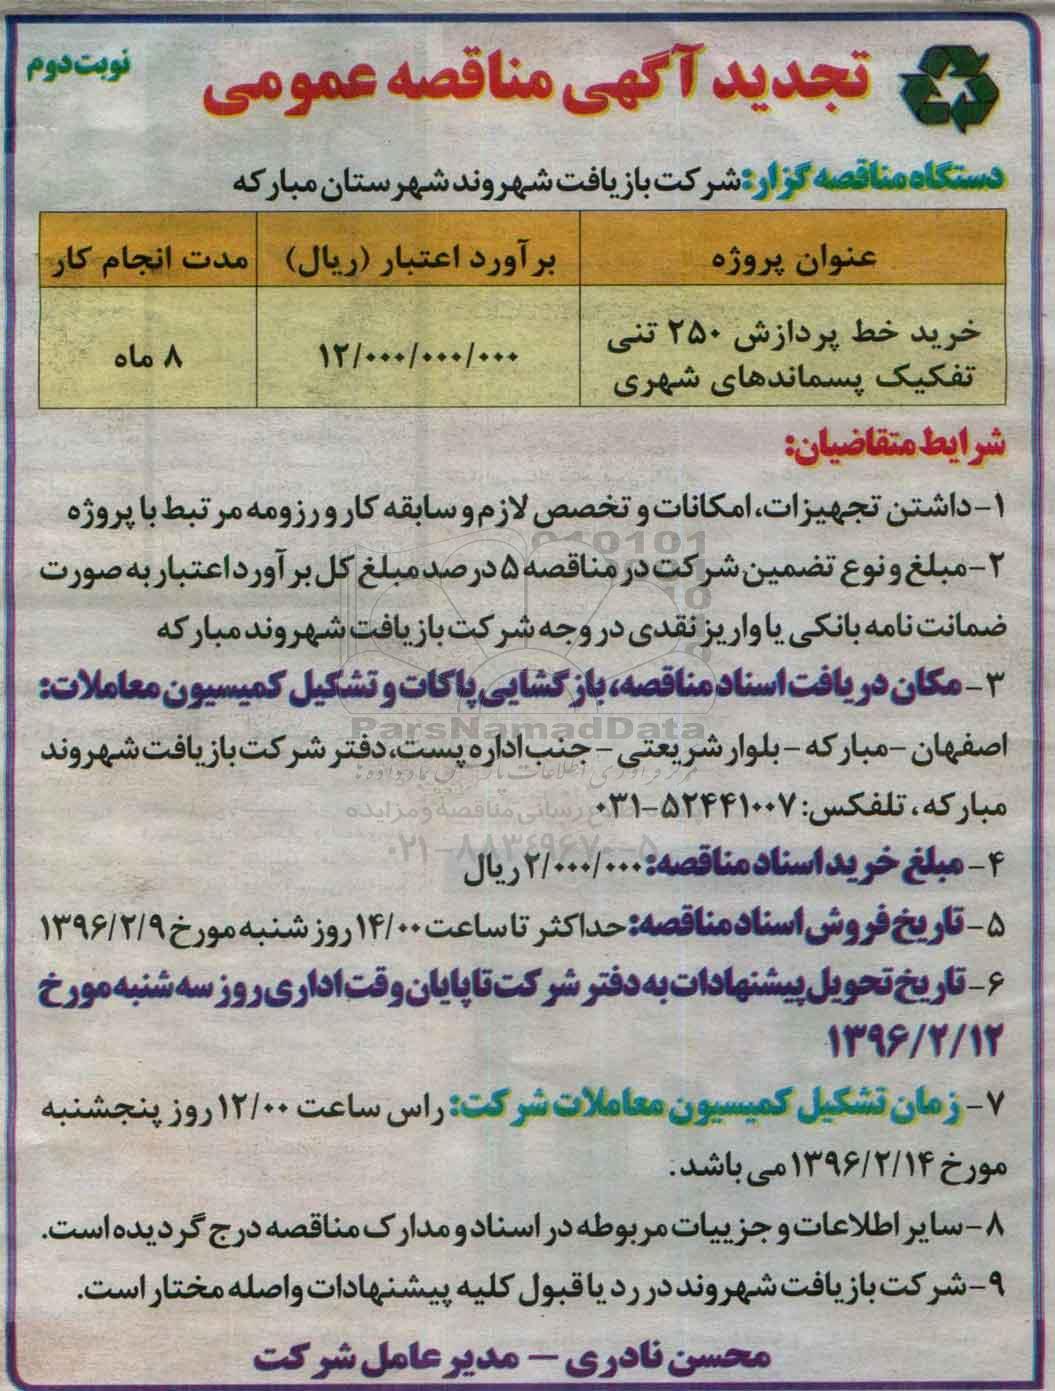 تجدید آگهی مناقصه عمومی
نوبت دوم
دستگاه مناقصه گزار: شرکت بازیافت شهروند شهرستان مبارکه
عنوان پروژه
برآورد اعتبار (ریال)
مدت انجام کار
خرید خط پردازش ۲۵۰ تنی
تفکیک پسماندهای شهری
۱۲/۰۰۰/۰۰۰/۰۰۰
۸ ماه
شرایط متقاضیان:
۱- داشتن تجهیزات، امکانات و تخصص لازم و سابقه کار و رزومه مرتبط با پروژه
۲- مبلغ و نوع تضمین شرکت در مناقصه ۵ درصد مبلغ کل برآورد اعتبار به صورت
ضمانت نامه بانکی یا واریز نقدی در وجه شرکت بازیافت شهروند مبارکه
۳- مکان دریافت اسناد مناقصه، بازگشایی پاکات و تشکیل کمیسیون معاملات:
اصفهان - مبارکه - بلوار شریعتی - جنب اداره پست، دفتر شرکت بازیافت شهروند
مبارکه، تلفکس: ۵۲۴۴۱۰۰۷-۰۳۱
۴- مبلغ خرید اسناد مناقصه: ۲/۰۰۰/۰۰۰ ریال
۵- تاریخ فروش اسناد مناقصه: حداکثر تا ساعت ۱۴/۰۰ روز شنبه مورخ ۱۳۹۶/۲/۹
۶- تاریخ تحویل پیشنهادات به دفتر شرکت تا پایان وقت اداری روز سه شنبه مورخ
۱۳۹۶/۲/۱۲
۷- زمان تشکیل کمیسیون معاملات شرکت: راس ساعت ۱۲/۰۰ روز پنجشنبه
مورخ ۱۳۹۶/۲/۱۴ می باشد.
۸- سایر اطلاعات و جزییات مربوطه در اسناد و مدارک مناقصه درج گردیده است.
۹- شرکت بازیافت شهروند در رد یا قبول کلیه پیشنهادات واصله مختار است.
محسن نادری - مدیر عامل شرکت
ParsNamadData
۰۲۱-۸۸۳۴۹۶۷۰-۵